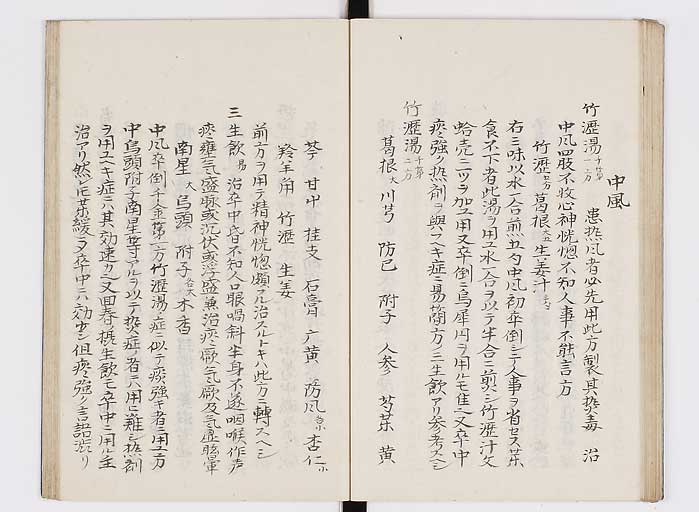 中風
竹瀝湯 千金第一方 患热風者必先用此方製其热毒 治
中风四肢不收心神恍惚不知人事不能言方
竹瀝 葛根 生姜汁
右三味以水一合煎 中風初卒倒シテ人事ヲ省セス茶
食不下者此湯ヲ用ユ水一合ヲ以テ半合ニ煎シ竹瀝汁文
蛤壳ニツヲ加ユ用又卒倒ニ烏犀円ヲ用ルモ佳又卒中
痰強ク热剤ヲ與スヘキ症ニ易簡方ノ三生飲アリ参考スヘシ
竹瀝湯 千金第二方
葛根大 川芎 防已 附子 人参 芍薬 黄
芩 甘艸 桂支 石膏 广黄 防风 杏仁小
羚羊角 竹瀝 生姜
前方ヲ用テ精神恍惚頗ル治スルトキハ此方ニ轉スヘシ
三生飲易 治卒中昏不知人口眼喎斜半身不遂咽喉作声
痰壅气盛脉或沉伏或浮盛兼治痰厥气厥及气虚眩暈
南星大 烏頭 附子各大 木香
中風卒倒千金第一方竹瀝湯ノ症ニ似テ痰強キ者ニ用ユ方
中烏頭附子南星等アルヲ以テ热症ノ者ニハ用ヒ難シ热剤
ヲ用ユヘキ症ニハ其効速カ也又回春ノ摂生飲モ卒中ニ用ル主
治アリ然レ𪜈茶緩ニシテ卒中ニハ効少シ但痰強ク言語渋リ